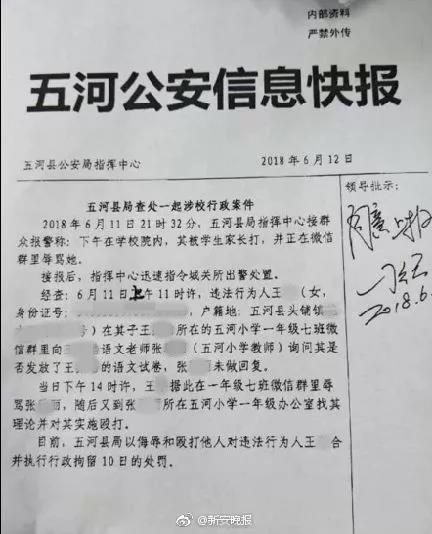 内部资料
严禁外传
五河公安信息快报
五河县公安局指挥中心
2018年6月12日
五河县局查处一起涉校行政案件
领导批示:
2018年6月11日21时32分,五河县局指挥中心接群
众报警称:下午在学校院内,其被学生家长打,并正在微信
群里辱骂她。
接报后,指挥中心迅速指令城关所出警处置。
经查:6月11日上午11时许,违法行为人王(女,
身份证号:,户籍地:五河县头铺镇
号)在其子王所在的五河小学一年级七班微
信群里向语文老师张(五河小学教师)询问其是
否发放了王的语文试卷,张未做回复。
当日下午14时许,王据此在一年级七班微信群里辱
骂张丽,随后又到张所在五河小学一年级办公室找其
理论并对其实施殴打。
目前,五河县局以侮辱和殴打他人对违法行为人王合
并执行行政拘留10日的处罚。
2018.6.
@新安晚报